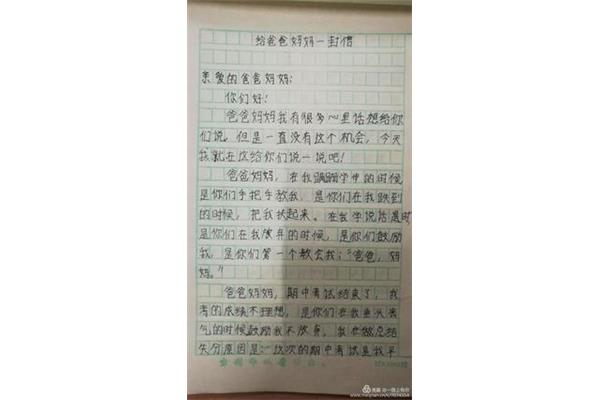 给爸爸妈妈一封信
亲爱的爸爸妈妈:
你们好!
爸爸妈妈我有很多心里话想给你
们说,但是一直没有这个机会,今天
我就在这给你们说一说吧!
爸爸妈妈,在我蹒跚学步的时候
是你们手把手教我,是你们在我跌到
的时候,把我扶起来。在我学说话是时
是你们在我放弃的时候,是你们鼓励
我,是你们第一个教会我:“爸爸,妈
妈。”
爸爸妈妈,期中考试结束了,我
考的成绩不理想,是你们在我垂头丧
气的时候鼓励我不放弃,我在做总结
失分原因是:这次的期中考试是我平